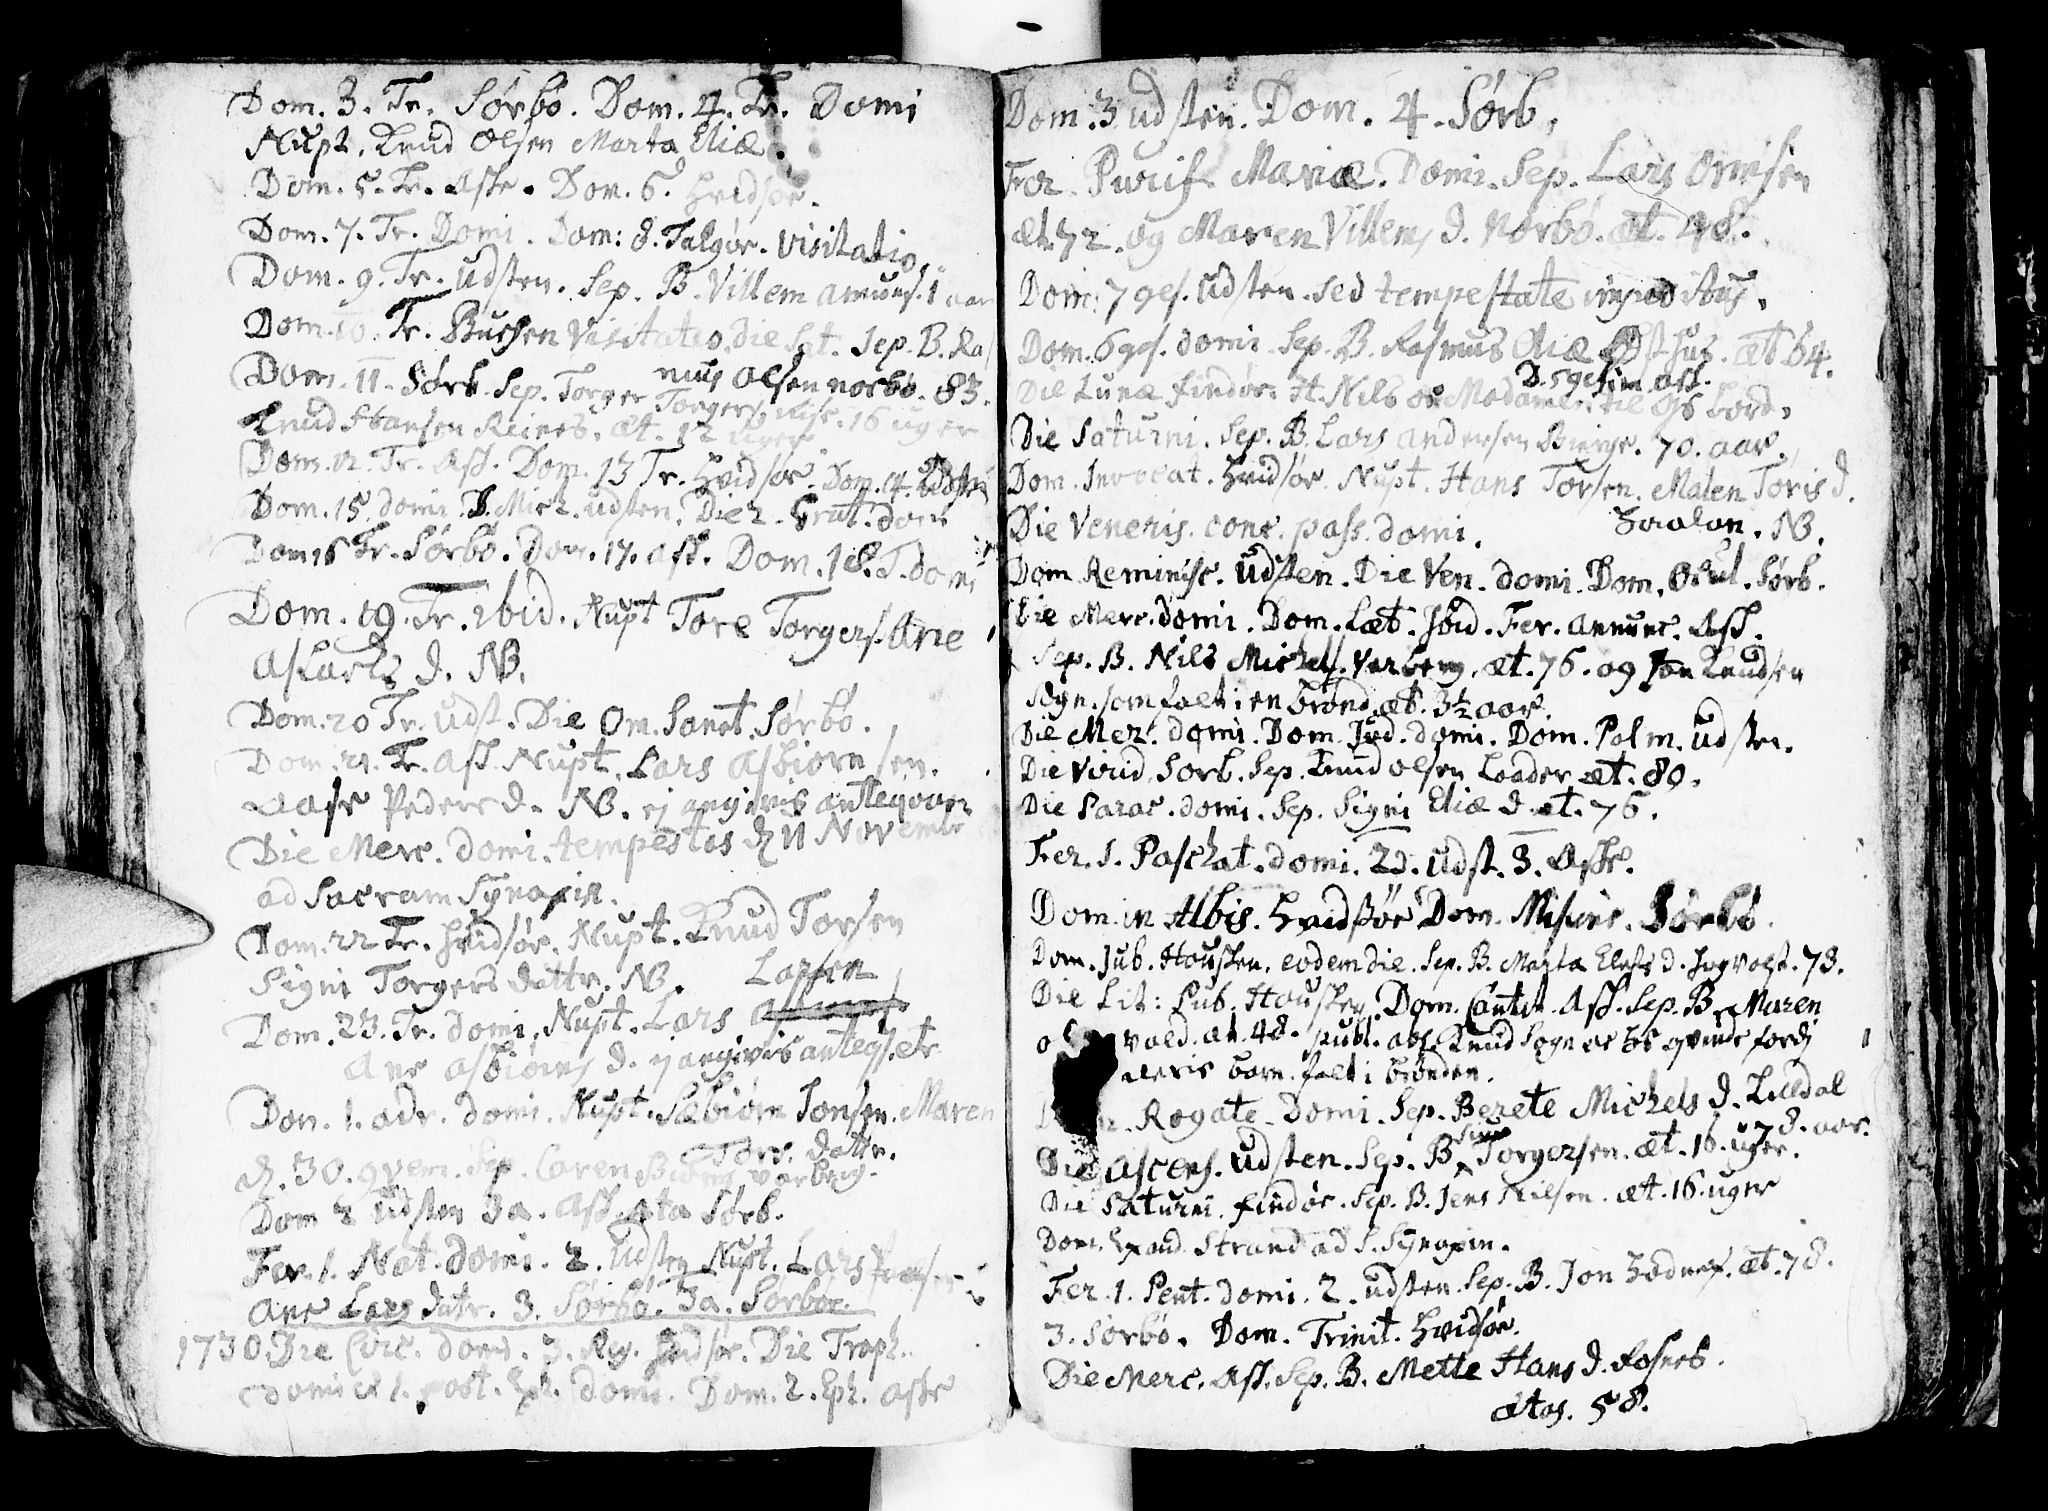 Dom. 3. Tr. Sørbø. Dom. 4. Tr. Domi
Nupt. Knud Olsen Marta Eliæ.
Dom. 5. Tr. Aske. Dom. 6. Hvidsøe.
Dom. 7. Tr. Domi. Dom: 8. Talgøe. Visitatio.
Dom. 9. Tr. Udsten. Sep. B. Villem Amunds. 1 aar
Dom. 10. Tr. Buchen Visitatio. die Sat. Sep. B. Ras
mus Olsen Norbø. 83.
Dom. 11. Sørb. Sep. Torger Torgers. 16 uger
Knud Hansen Reines. æt. 12 uger
Dom. 12. Tr. Ask. Dom. 13 Tr. Hvidsøe. Dom. 14. Udsten
Dom. 15. domi. D. Mich. udsten. Die domi
Dom 16 Tr. Sørbø. Dom. 17. Ask. Dom. 18. T. domi
Dom. 19. Tr. ibid. Nupt Tore Torgers. Ane
Aslachs d. NB.
Dom. 20 Tr. Udst. Die Om. Sanct. Sørbø.
Dom. 21. Tr. Ask Nupt. Lars Asbiørnsen.
Aase Peders d. NB. ej angivis
Die Merc. domi. tempestas d. 11 November
ad Sacram Synaxin.
Dom. 22 Tr. Hvidsøe. Nupt. Knud Torsen
Signi Torgers dattr. NB. Larsen
Dom. 23. Tr. domi. Nupt. Lars
Ane Asbiørns d. ej angivis
Dom. 1. adv. domi. Nupt. Sæbiørn Jonsen. Maren
Tors dattr.
d. 30. Sep. Caren Varberg.
Dom 2 Udsten 3a. Ask 4ta Sørb.
Fer. 1. Nat. domi. 2. Udsten Nupt. Lars
Ane Lars datr. 3. Sørbø. 3a. Sørbøe.
1730. Die Circ. domi. 3. Reg. Hvidsøe. Die
domi 1. post. Eph. domi. Dom. 2. Eph. Aske
Dom. 3 udsten. Dom. 4. Sørb.
Fer. Purif. Mariæ. Domi. Sep. Lars Ormsen
æt. 72. og Maren Villems d. Norbø. æt. 48.
Dom: 7ges. Udsten. sed tempestate impeditus.
Dom. 6ges. domi. Sep. B. Rasmus Eliæ Østhus. æt 64.
D. 5gesim Ask.
Die Lunæ Findøe. H. Nils og Madamen til Gs bord.
Die Saturni. Sep. B. Lars Andersen 70. aar.
Dom. Invocat. Hvidsøe. Nupt. Hans Torsen. Malen Toris d.
Haaland. NB.
Die Veneris. conc. pass. domi.
Dom Reminisc. Udsten. Die Ven. domi. Dom. Ocul. Sørb.
Die Merc. domi. Dom. Læt. Ibid. Fer. Annunc. Ask.
Sep. B. Nils Michels. Varberg. æt. 76. og Jon Knudsen
Sogn. som falt i en brønd. æt. 3½ aar.
Die Mer. domi. Dom. Jud. domi. Dom. Palm. udsten.
Die Virid. Sørb. Sep. Knud Olsen Loader æt. 80.
Die Parac. domi. Sep. Signi Eliæ d. æt. 76.
Fer. 1. Paschat. domi. 2d. udst. 3. Aske.
Dom. in Albis. Hvidsøe Dom. Miseric. Sørbø.
Dom. Jub. Housken. eodem die. Sep. B. Marta Elefs d. 78.
Die Lit: Pub. Housken. Dom. Cantat. Ask. Sep. B. Maren
vold. æt. 48. publ. abs. Knud Sogn og hs qvinde fordj
deris barn falt i brønden.
Rogate. Domi. Sep. Berete Michels d. Lilledal
78. aar.
Die Ascens. Udsten. Sep. B. Torgersen. æt. 16. uger.
Die Saturni. Findøe. Sep. B. Jens Nilsen. æt. 16. uger
Dom. Exaud. Strand ad S. Synaxin.
Fer. 1. Pent. domi. 2. udsten. Sep. B. Jon Hodnef. æt. 78.
3. Sørbø. Dom. Trinit. Hvidsøe.
Die Merc. Ask. Sep. B. Mette Hans d.
ætas. 58.